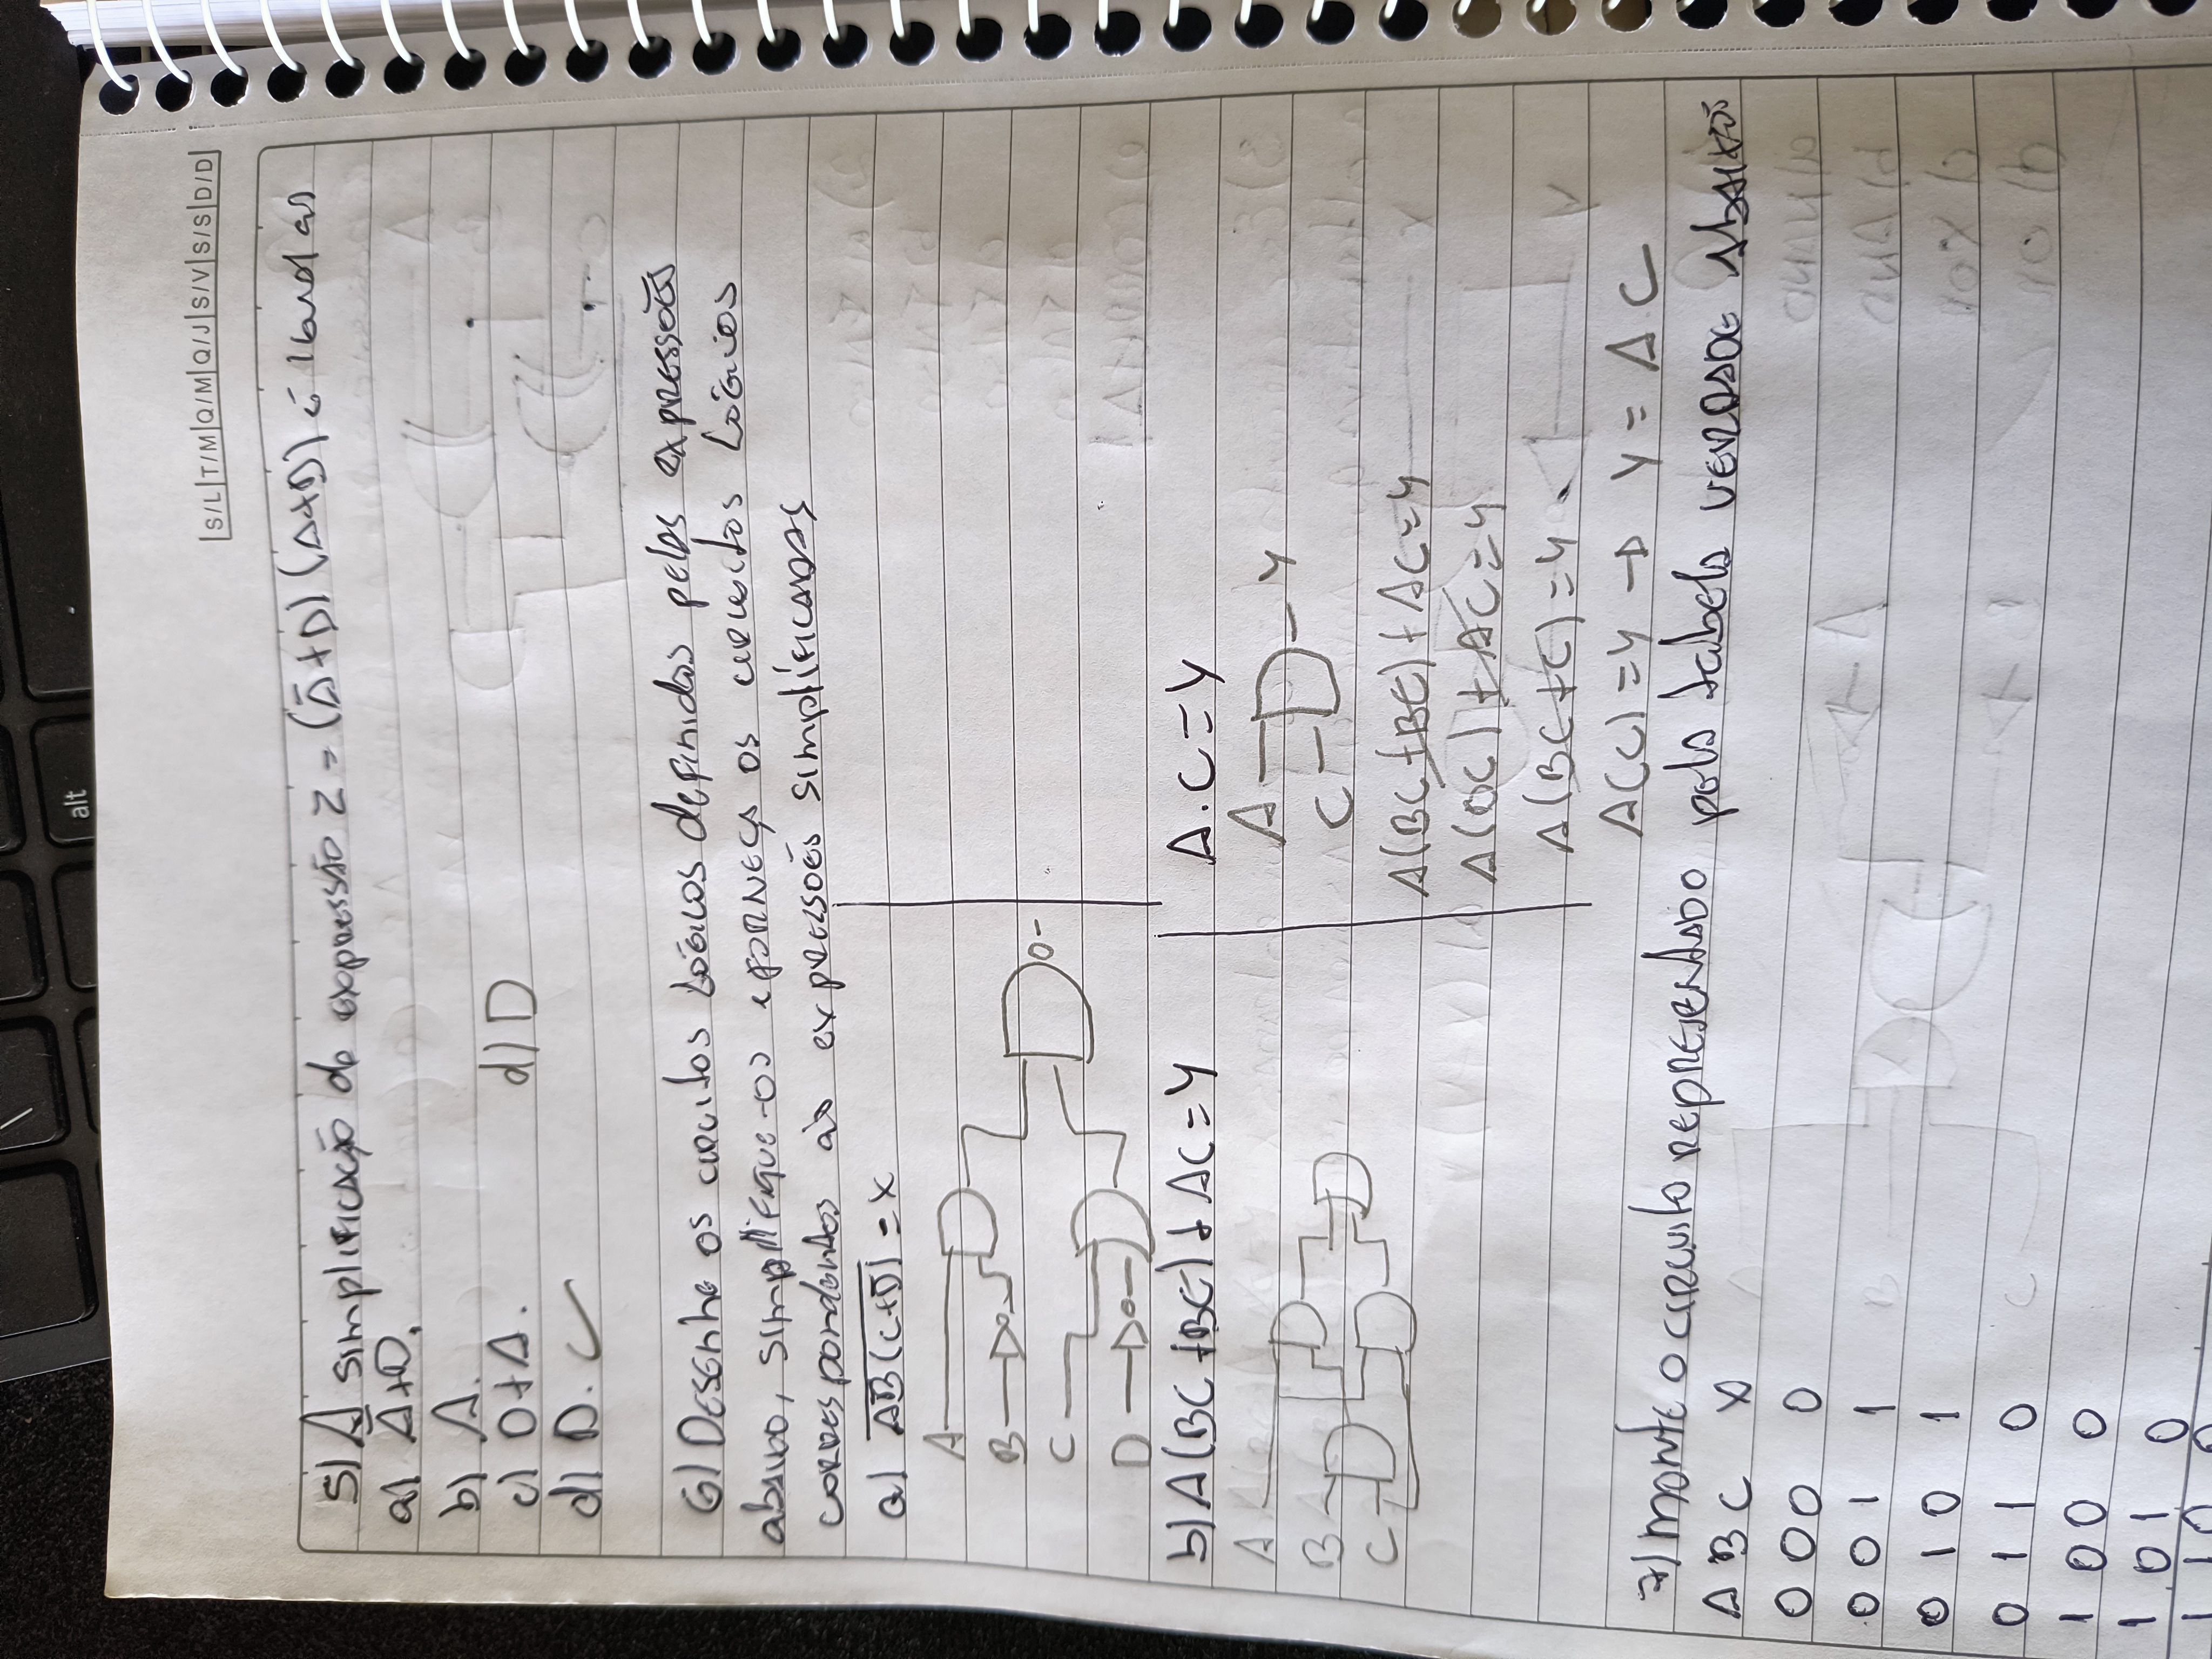 alt
S/L T/M Q/M Q/J S/V S/S D/D
5) A simplificação da expressão Z = (Ā+D) (A+D) é igual as
a) Ā+D.
b) A.
c) D+A. d) D
d) D. ✓
6) Desenhe os circuitos lógicos definidos pelas expressões
abaixo, simplifique-os e forneça os circuitos lógicos
correspondentes às expressões simplificadas
a) \overline{A\overline{B}(C+\overline{D})} = X
A
B
C
D
b) A(BC+BC) + AC = Y
A
B
C
A.C = Y
A
C
Y
A(BC+BC) + AC = Y
A(BC) + AC = Y
A(BC+C) = Y
A(C) = Y → Y = A.C
7) Monte o circuito representado pela tabela verdade
A B C X
0 0 0 0
0 0 1 1
0 1 0 1
0 1 1 0
1 0 0 0
1 0 1 0
1 1 0 0